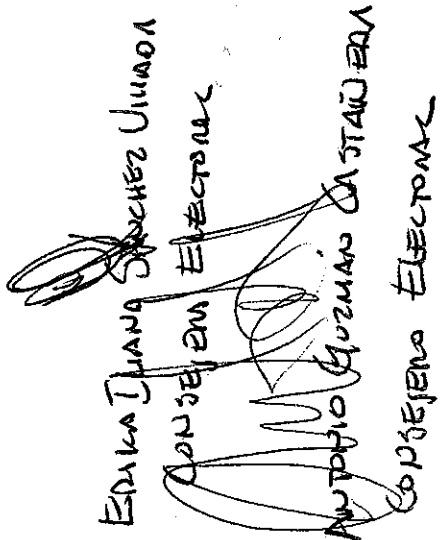 ERIKA ILIANA SÁNCHEZ
CONSEJERA ELECTORAL
ANTONIO GUZMÁN CASTAÑEDA
CONSEJERO ELECTORAL